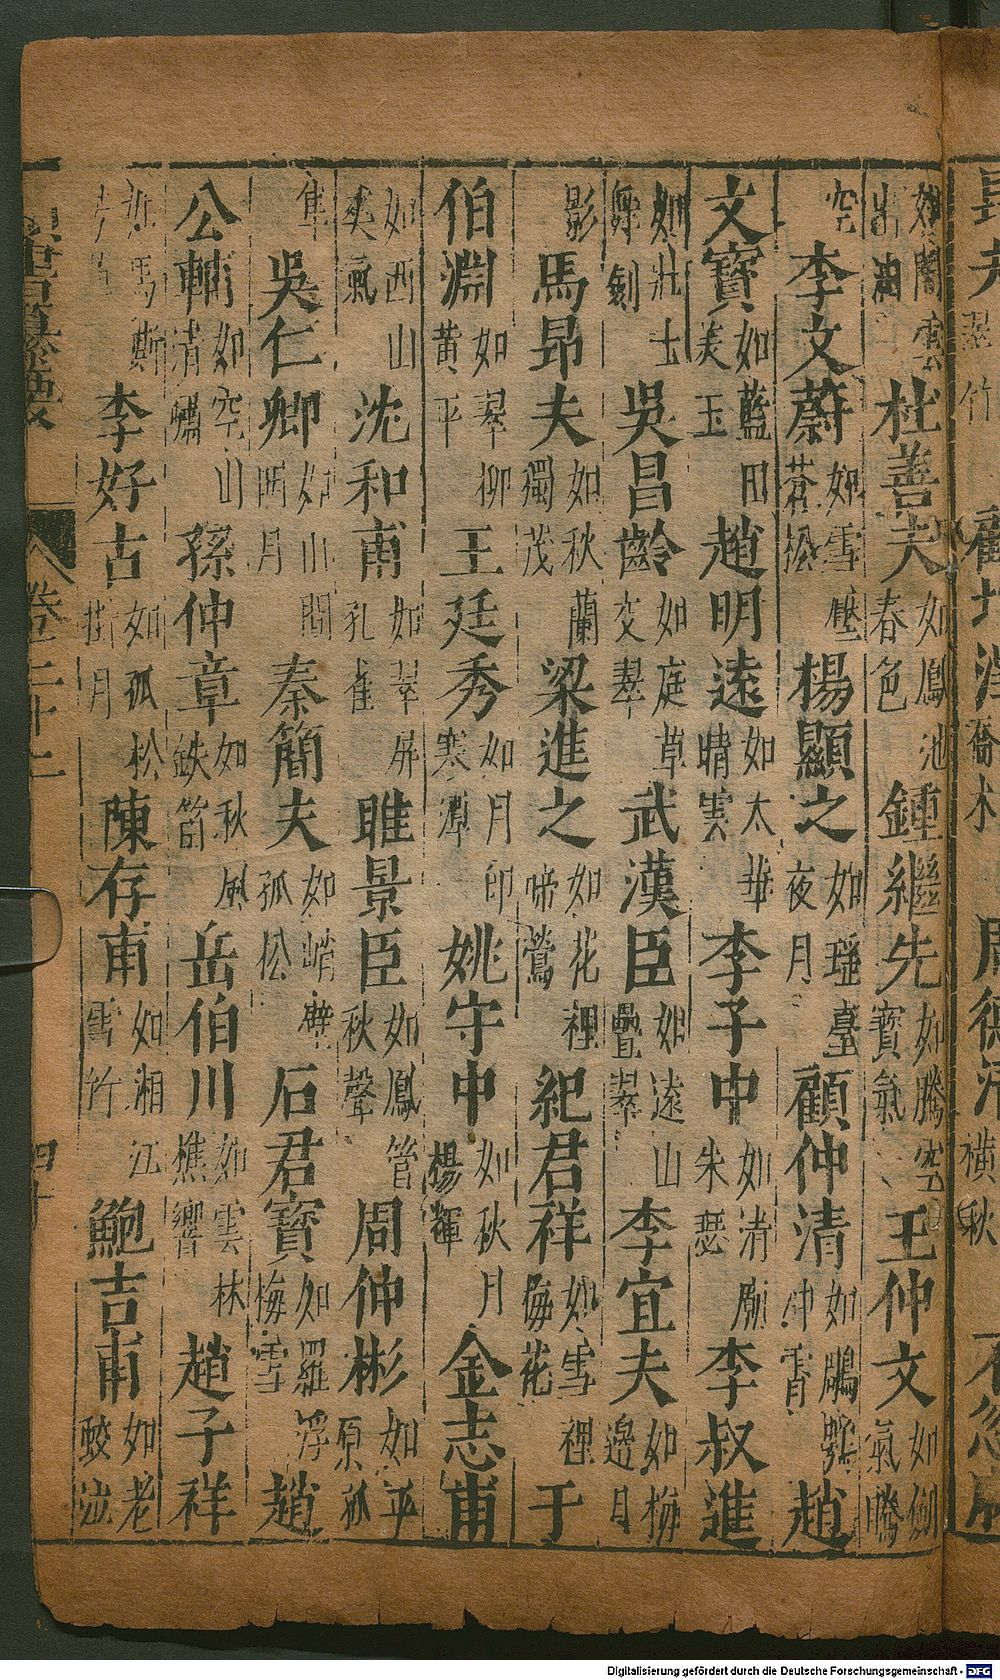 翠竹 喬木 周德清 橫秋 不忽麻
如閑雲出岫 杜善夫 如鳳池春色 鍾繼先 如騰空寶氣 王仲文 如劍氣騰
空 李文蔚 如雪壓蒼松 楊顯之 如瑤臺夜月 顧仲清 如鵰鶚冲霄 趙
文寶 如藍田美玉 趙明遠 如太華晴雲 李子中 如清廟朱瑟 李叔進
如壯士舞劍 吳昌齡 如庭草交翠 武漢臣 如遠山疊翠 李宜夫 如梅邊月
影 馬昂夫 如秋蘭獨茂 梁進之 如花裡啼鶯 紀君祥 如雪裡梅花 于
伯淵 如翠柳黃平 王廷秀 如月印寒潭 姚守中 如秋月楊輝 金志甫
如西山爽氣 沈和甫 如翠屏孔雀 睢景臣 如鳳管秋聲 周仲彬 如平原孤
隼 吳仁卿 如山間明月 秦簡夫 如峭壁孤松 石君寶 如羅浮梅雪 趙
公輔 如空山清嘯 孫仲章 如秋風鉄笛 岳伯川 如雲林樵響 趙子祥
如馬嘶 李好古 如孤松掛月 陳存甫 如湘江雪竹 鮑吉甫 如老蛟泣
卷二十二
Digitalisierung gefördert durch die Deutsche Forschungsgemeinschaft - DFG